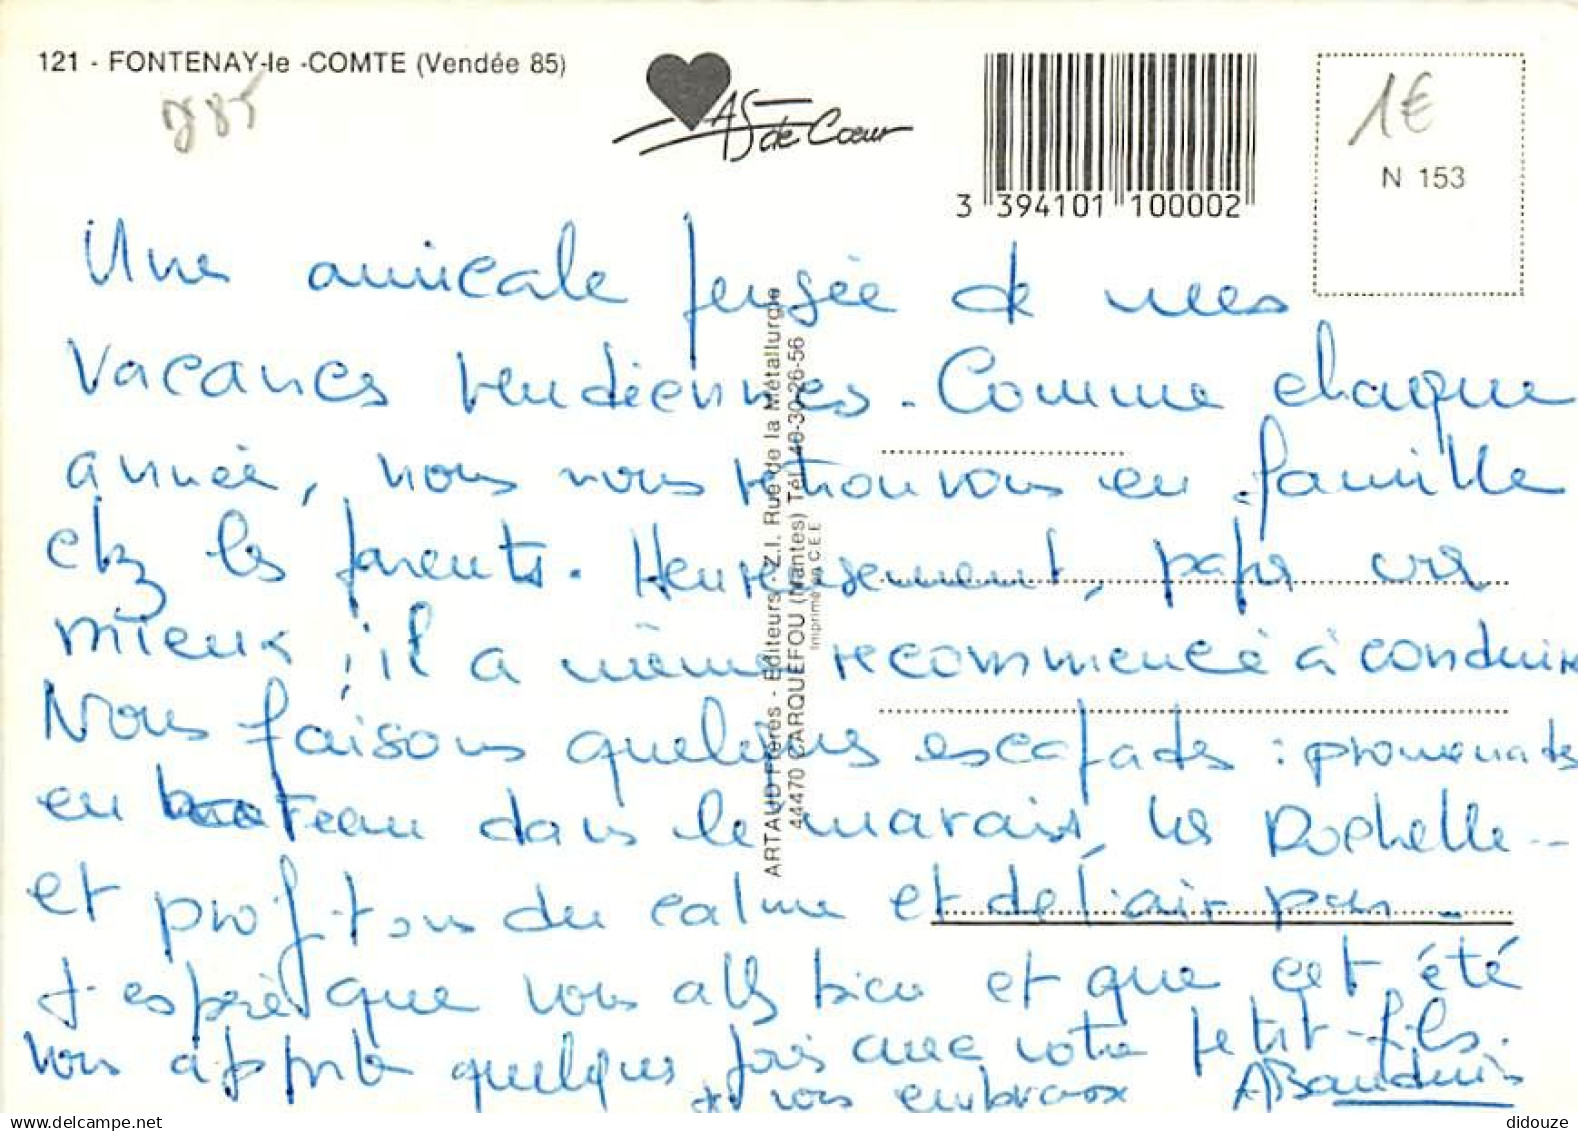 121 - FONTENAY-le -COMTE (Vendée 85)
D85
AS de Cœur
3 394101 100002
1€
N 153
ARTAUD Frères - Editeurs - Z.I. Rue de la Métallurgie
44470 CARQUEFOU (Nantes) Tél. 40-30-26-56
Imprimé en C.E.E
Une amicale pensée de mes
vacances vendéennes. Comme chaque
année, nous nous retrouvons en famille
chez les parents. Heureusement, papa va
mieux ; il a même recommencé à conduire
Nous faisons quelques escapades : promenades
en bateau dans le marais, La Rochelle --
et profitons du calme et de l'air pur.
J'espère que vous allez bien et que cet été
vous apporte quelques joies avec votre petit-fils.
Je vous embrasse
didouze